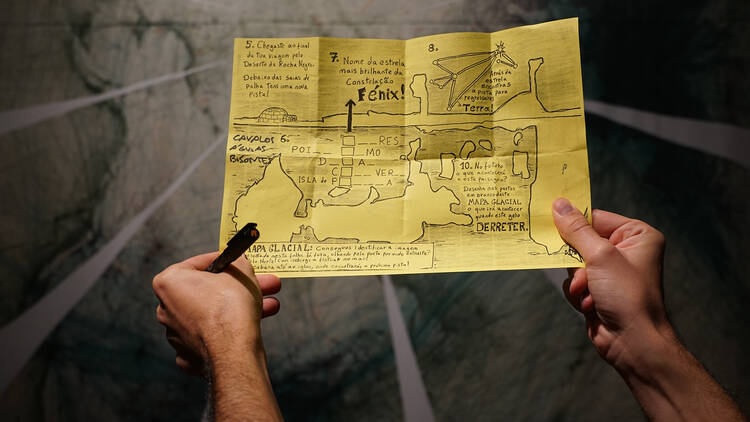 5. Chegaste ao final
da tua viagem pelo
Deserto da Rocha Negra.
Debaixo das saias de
palha tens uma nova
pista!
7. Nome da estrela
mais brilhante da
Constelação
Fénix!
8.
Atrás da
estrela
encontras
a pista para
regressares
à Terra!
CAVALOS 6.
ÁGUIAS
BISONTES
RES
POI MO
D A
C VER
ISLA do P A
10. No futuro
o que acontecerá
a esta paisagem?
Desenha nas partes
em branco deste
MAPA GLACIAL
o que irá acontecer
quando este gelo
DERRETER.
MAPA GLACIAL: Consegues identificar a imagem